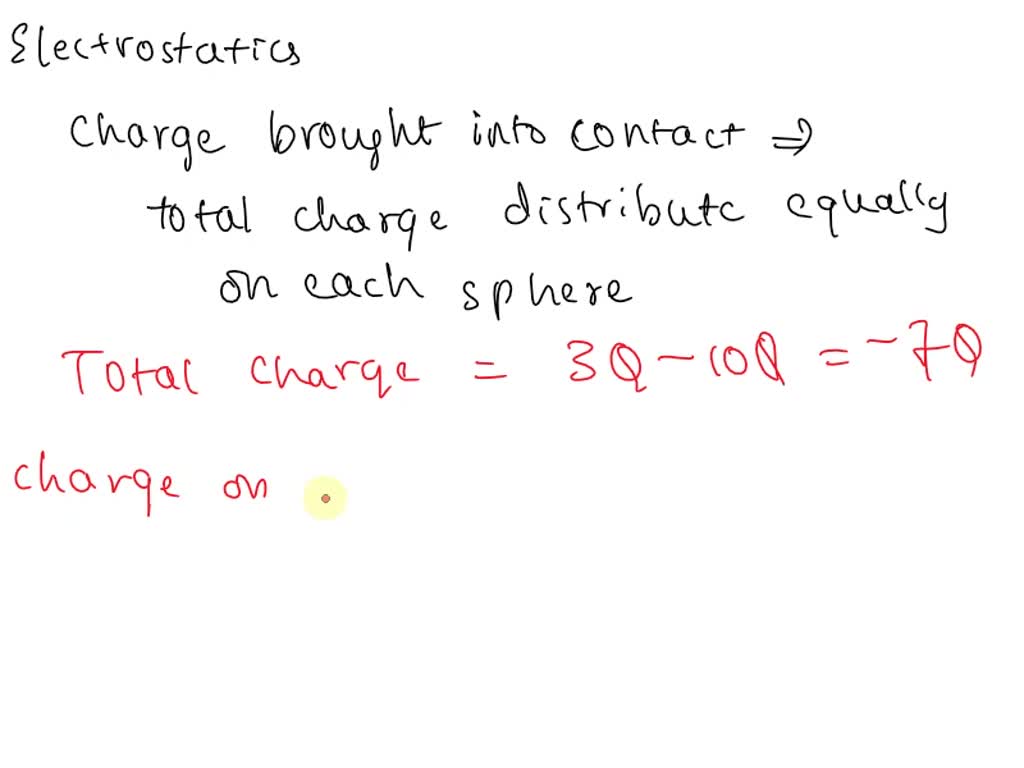 Electrostatics
Charge brought into contact ⇒
total charge distribute equally
on each sphere
Total charge = 3Q - 10Q = -7Q
charge on